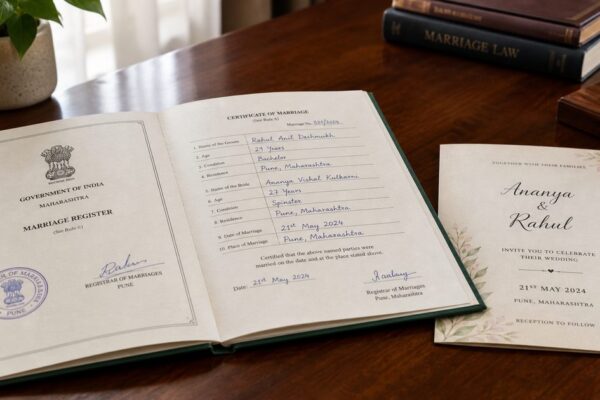 GOVERNMENT OF INDIA
MAHARASHTRA
MARRIAGE REGISTER
(See Rule 5)
REGISTRAR OF MARRIAGES
PUNE
OF MARRIAGES
PUNE
CERTIFICATE OF MARRIAGE
(See Rule 5)
Marriage No.
1. Name of the Groom Rahul Anil Deshmukh
2. Age 29 Years
3. Condition Bachelor
4. Residence Pune, Maharashtra
5. Name of the Bride Ananya Vishal Kulkarni
6. Age 27 Years
7. Condition Spinster
8. Residence Pune, Maharashtra
9. Date of Marriage 21st May 2024
10. Place of Marriage Pune, Maharashtra
Certified that the above named parties were
married on the date and at the place stated above.
Date: 21st May 2024
Registrar of Marriages
Pune, Maharashtra
MARRIAGE LAW
TOGETHER WITH THEIR FAMILIES
Ananya
&
Rahul
INVITE YOU TO CELEBRATE
THEIR WEDDING
21ST MAY 2024
PUNE, MAHARASHTRA
RECEPTION TO FOLLOW